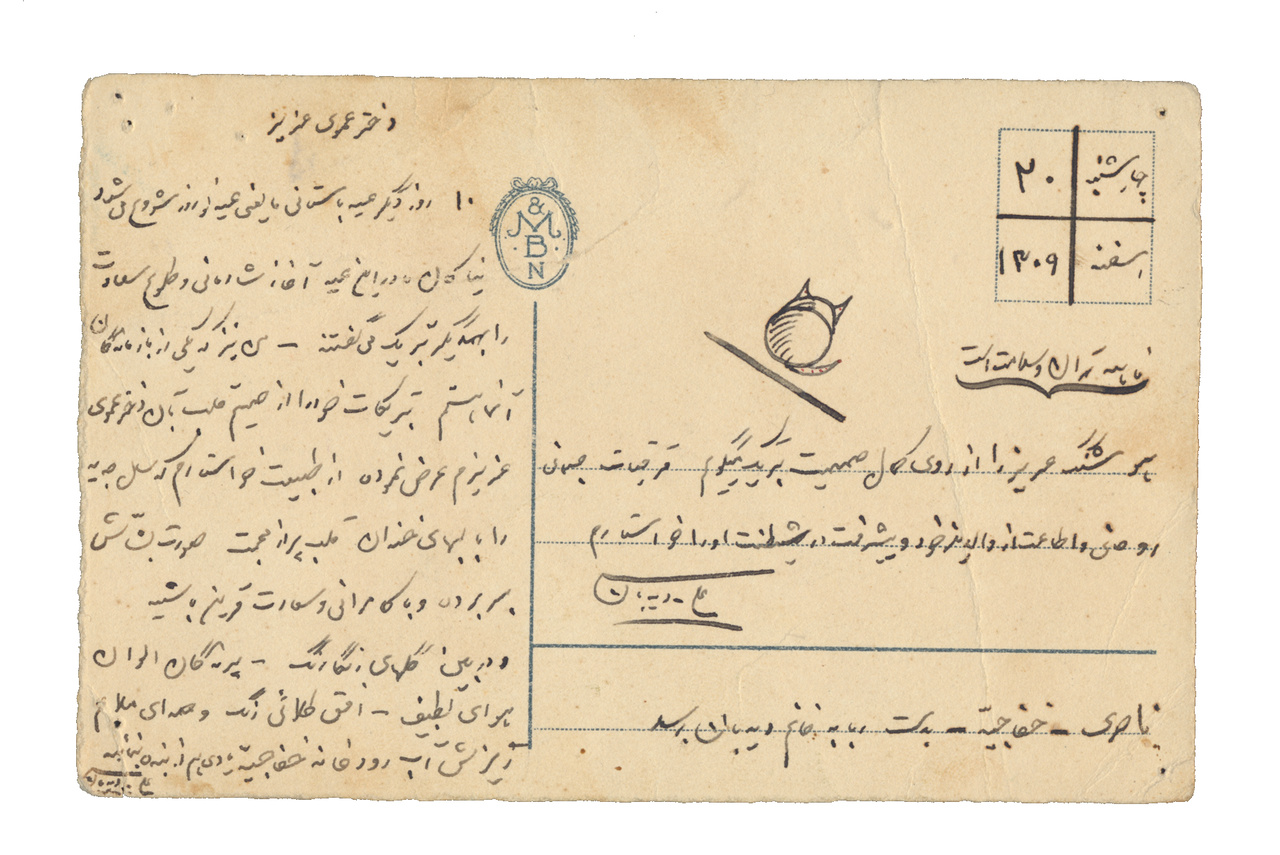 دختر عموی عزیز
۱۰ روز دیگر عید باستانی ما یعنی عید نوروز شروع می‌شود
نیاکان ما در این عید آغاز شادمانی و طلوع سعادت
را بهمدیگر تبریک می گفتند – من نیز که یکی از بازماندگان
آنها هستم تبریکات خود را از صمیم قلب بآن دختر عموی
عزیزم عرض نموده از طبیعت خواستارم که سال جدید
را با لبهای خندان قلب پر از محبت صورت بشّاش
بسر برده و با کامرانی و سعادت قرین باشید
و در بین گلهای رنگارنگ – پرندگان الوان
هوای لطیف – افق طلائی رنگ و صدای ملایم
ریزش آب رودخانه خفاجیه یادی هم از بنده بنمائید
ع دیدبان
& M B N
چهارشنبه ۲۰
اسفند ۱۳۰۹
هوشنگ عزیز را از روی کمال صمیمیت تبریک میگویم ترقیات جسمانی
روحی و اطاعت از والدین خود و پیشرفت در شیطنت او را خواستارم
ع – دیدبان
ناصری – خفاجیّه – بدست ربابه خانم دیدبان برسد